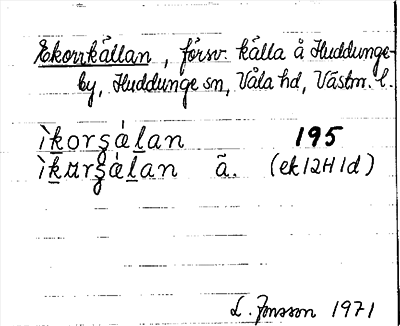 Ekorrkällan, försv. källa å Huddunge-
by, Huddunge sn, Våla hd, Västm. l.
ìk̲orʂála̲n 195
ìk̲ɤrʂála̲n ä. (ek 12H 1d)
L. Jonsson 1971